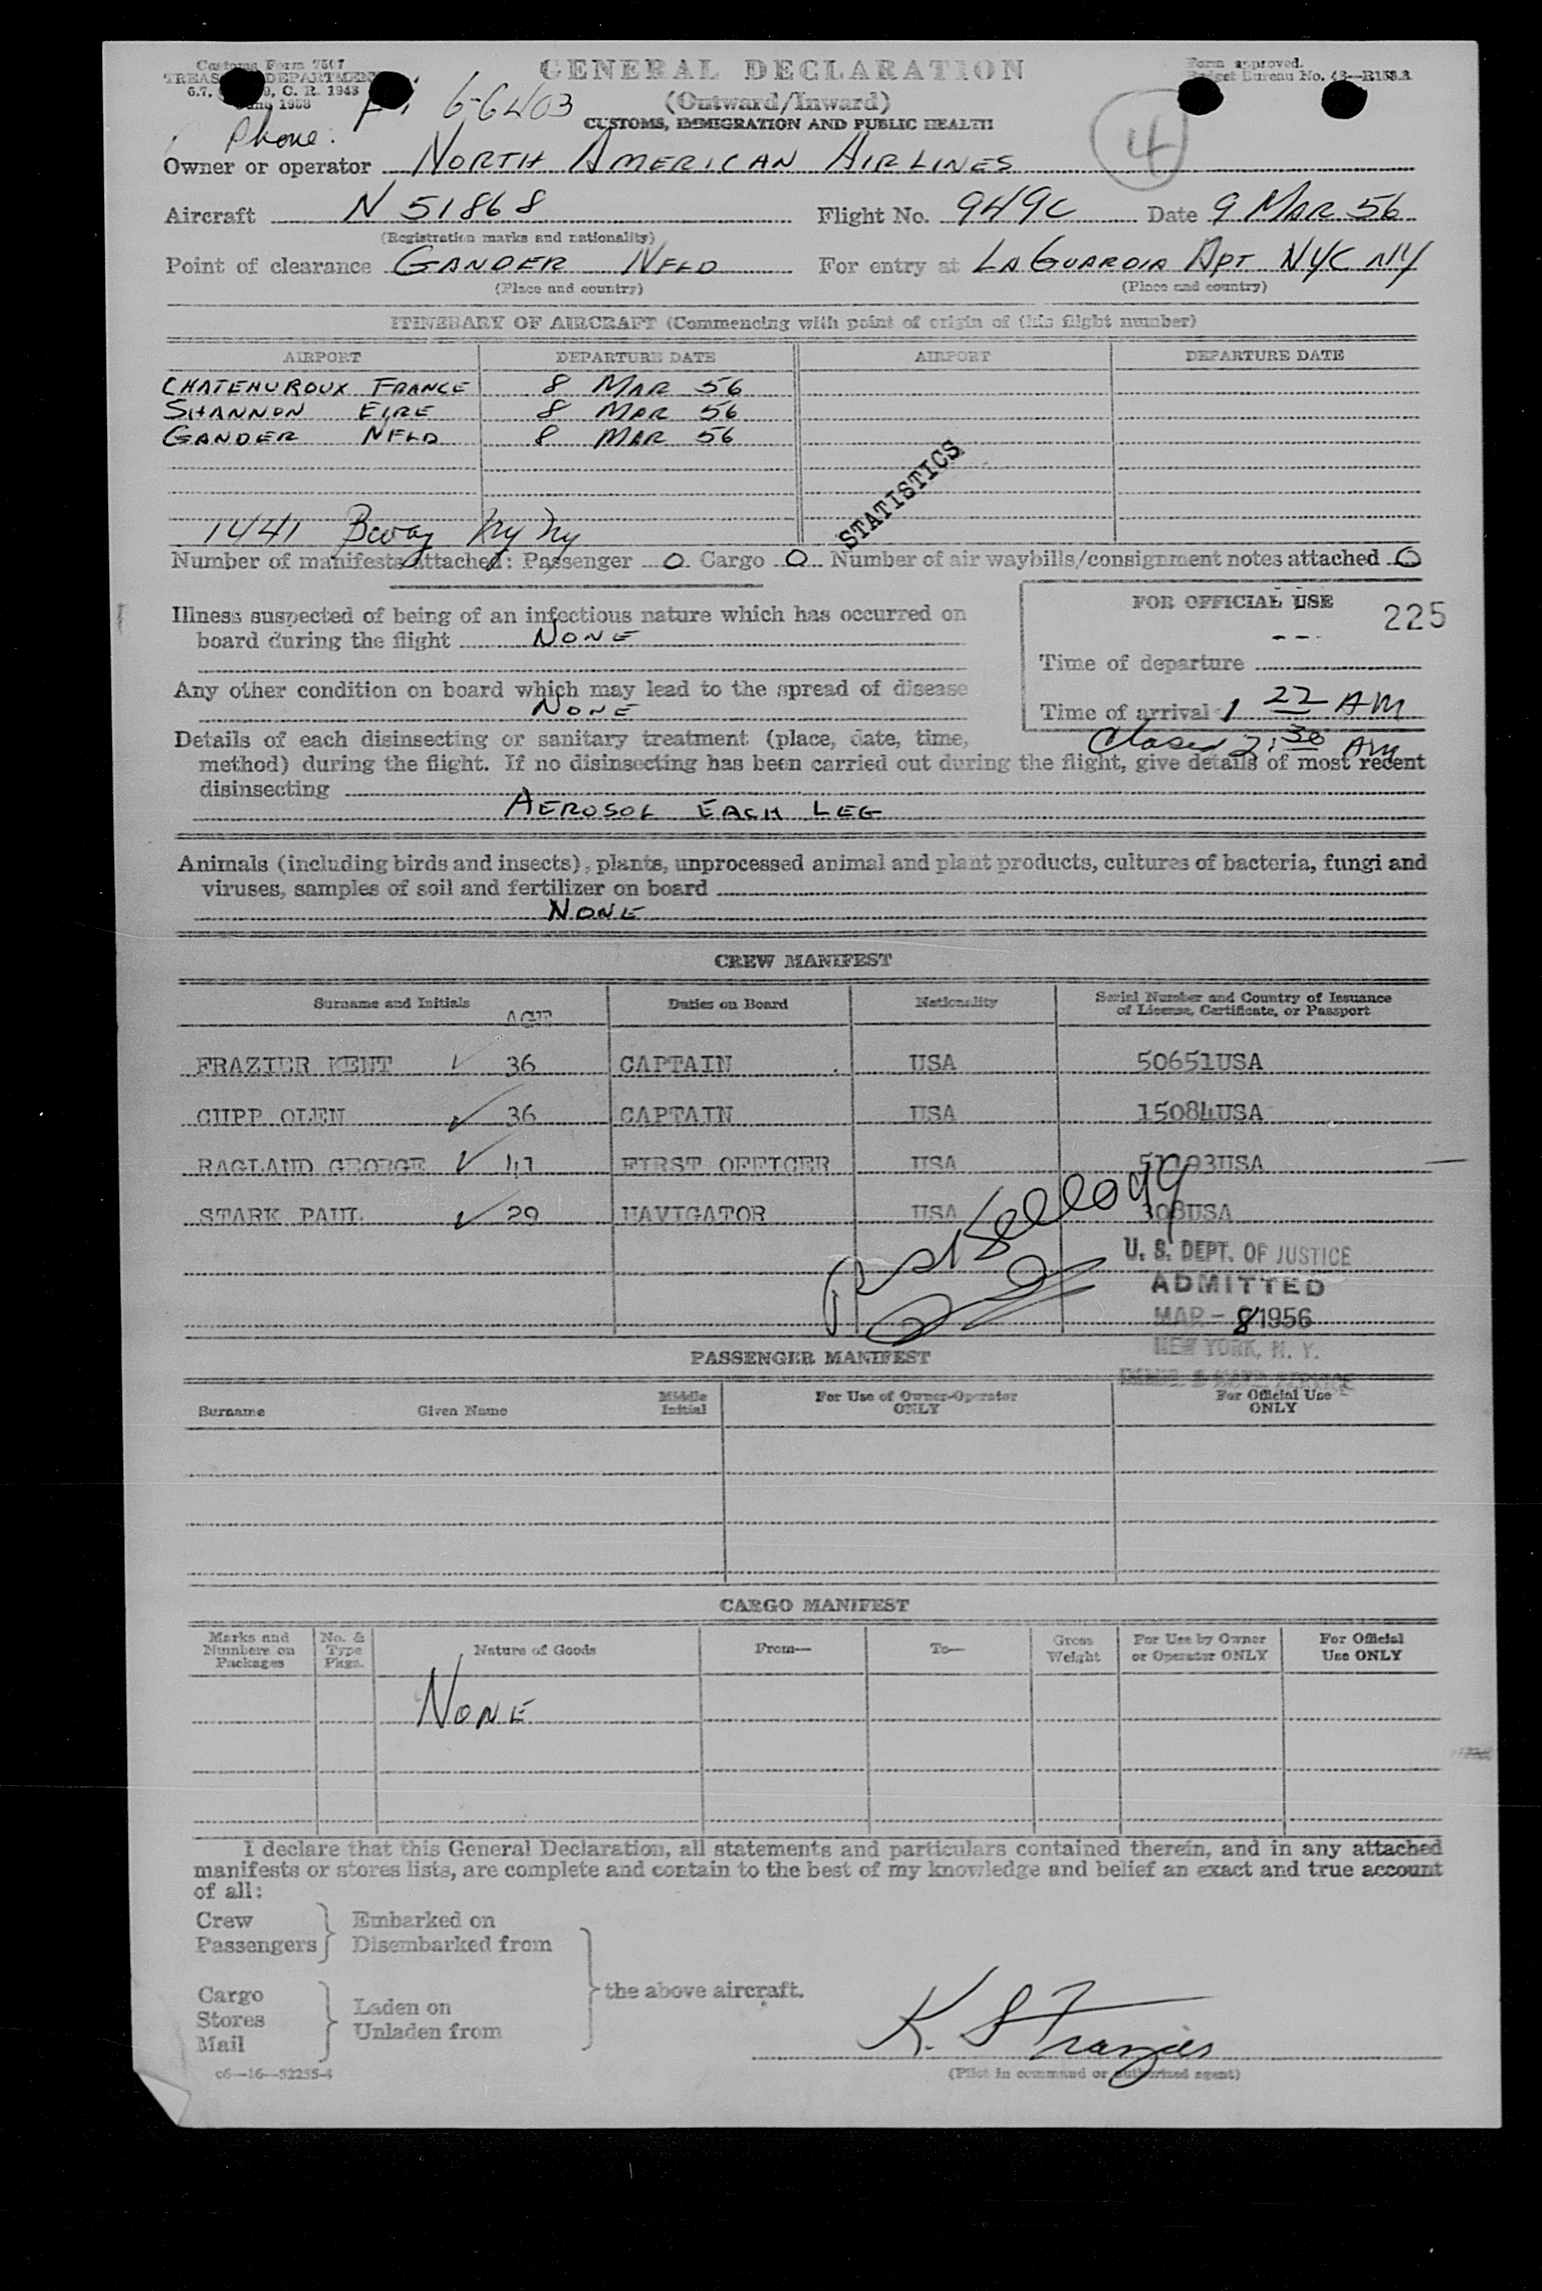 Customs Form 7507
GENERAL DECLARATION
Form approved.
TREASURY DEPARTMENT
Budget Bureau No. 48—R158.3
C. R. 1943
June 1953
6-6403
(Outward/Inward)
CUSTOMS, IMMIGRATION AND PUBLIC HEALTH
Phone:
4
Owner or operator NORTH AMERICAN AIRLINES
Aircraft N 51868 Flight No. 949C Date 9 MAR 56
(Registration marks and nationality)
Point of clearance GANDER NFLD For entry at LAGUARDIA APT NYC NY
(Place and country) (Place and country)
ITINERARY OF AIRCRAFT (Commencing with point of origin of this flight number)
AIRPORT DEPARTURE DATE AIRPORT DEPARTURE DATE
CHATEAUROUX FRANCE 8 MAR 56
SHANNON EIRE 8 MAR 56
GANDER NFLD 8 MAR 56
STATISTICS
1441 Bway Ny Ny
Number of manifests attached: Passenger 0 Cargo 0 Number of air waybills/consignment notes attached 0
FOR OFFICIAL USE
225
Illness suspected of being of an infectious nature which has occurred on
board during the flight NONE
Time of departure
Any other condition on board which may lead to the spread of disease
NONE
Time of arrival 1 22 AM
Closed 2:30 AM
Details of each disinsecting or sanitary treatment (place, date, time,
method) during the flight. If no disinsecting has been carried out during the flight, give details of most recent
disinsecting
AEROSOL EACH LEG
Animals (including birds and insects), plants, unprocessed animal and plant products, cultures of bacteria, fungi and
viruses, samples of soil and fertilizer on board
NONE
CREW MANIFEST
Surname and Initials AGE Duties on Board Nationality Serial Number and Country of Issuance
of License, Certificate, or Passport
FRAZIER KENT 36 CAPTAIN USA 50651USA
CUPP OLEN 36 CAPTAIN USA 15084USA
RAGLAND GEORGE 41 FIRST OFFICER USA
STARK PAUL 29 NAVIGATOR USA 308USA
Kellogg
U. S. DEPT. OF JUSTICE
ADMITTED
MAR - 8 1956
NEW YORK, N. Y.
IMMIG. & NATZ. SERVICE
PASSENGER MANIFEST
Surname Given Name Middle Initial For Use of Owner-Operator ONLY For Official Use ONLY
CARGO MANIFEST
Marks and Numbers on Packages No. & Type Pkgs. Nature of Goods From— To— Gross Weight For Use by Owner or Operator ONLY For Official Use ONLY
NONE
I declare that this General Declaration, all statements and particulars contained therein, and in any attached
manifests or stores lists, are complete and contain to the best of my knowledge and belief an exact and true account
of all:
Crew Embarked on
Passengers Disembarked from
the above aircraft.
Cargo
Stores Laden on
Mail Unladen from
K. S Frazier
c6—16—52255-4
(Pilot in command or authorized agent)